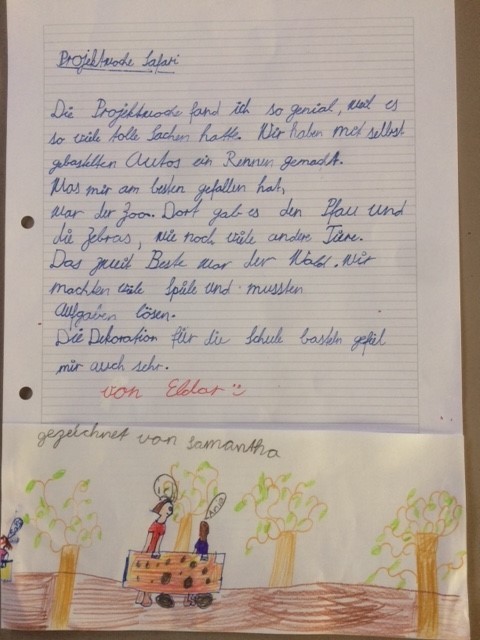 Projektwoche Safari
Die Projektwoche fand ich so genial, weil es
so viele tolle Sachen hatte. Wir haben mit selbst
gebastelten Autos ein Rennen gemacht.
Was mir am besten gefallen hat,
war der Zoo. Dort gab es den Pfau und
die Zebras, wie noch viele andere Tiere.
Das zweit Beste war der Wald. Wir
machten viele Spiele und mussten
Aufgaben lösen.
Die Dekoration für die Schule basteln gefiel
mir auch sehr.
von Eldar
gezeichnet von Samantha